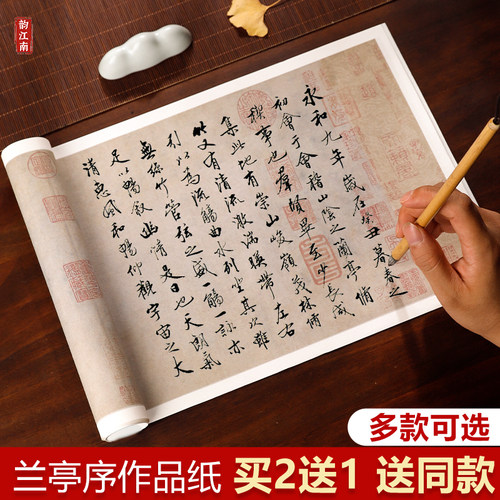 韵江南
永和九年歲在癸丑暮春之
初會于會稽山陰之蘭亭脩
禊事也羣賢畢至少長咸
集此地有崇山峻領茂林脩
竹又有清流激湍暎帶左右
引以為流觴曲水列坐其次雖
無絲竹管弦之盛一觴一詠亦
足以暢敘幽情是日也天朗氣
清惠風和暢仰觀宇宙之大
多款可选
兰亭序作品纸 买2送1 送同款